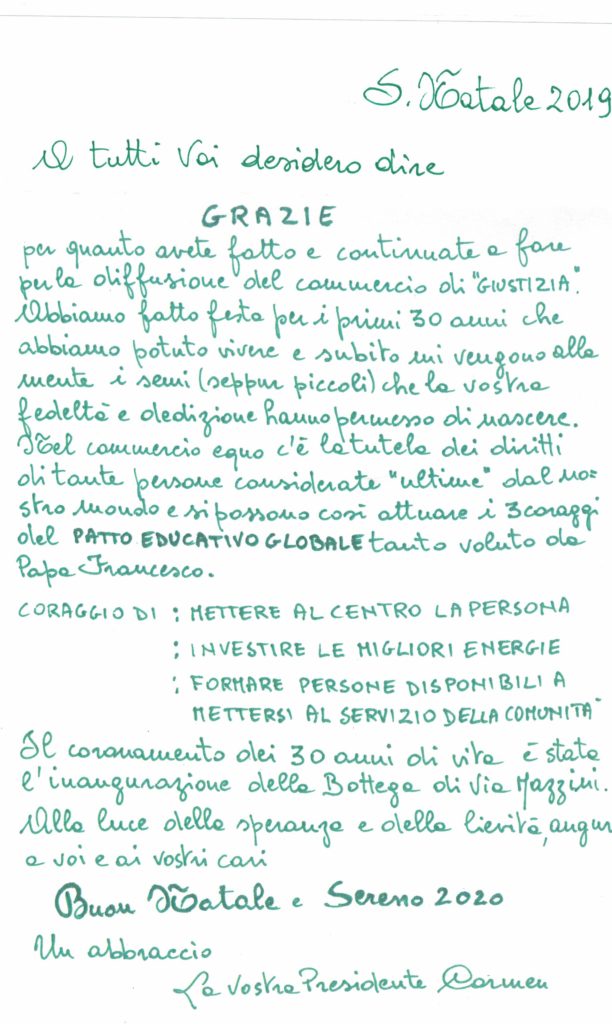 S. Natale 2019
A tutti Voi desidero dire
GRAZIE
per quanto avete fatto e continuate a fare
per la diffusione del commercio di "GIUSTIZIA".
Abbiamo fatto festa per i primi 30 anni che
abbiamo potuto vivere e subito mi vengono alla
mente i semi (seppur piccoli) che la vostra
fedeltà e dedizione hanno permesso di nascere.
Nel commercio equo c'è la tutela dei diritti
di tante persone considerate "ultime" dal no=
stro mondo e si possono così attuare i 3 coraggi
del PATTO EDUCATIVO GLOBALE tanto voluto da
Papa Francesco.
CORAGGIO DI : METTERE AL CENTRO LA PERSONA
: INVESTIRE LE MIGLIORI ENERGIE
: FORMARE PERSONE DISPONIBILI A
METTERSI AL SERVIZIO DELLA COMUNITÀ
Il coronamento dei 30 anni di vita è stata
l'inaugurazione della Bottega di Via Mazzini.
Alla luce della speranza e della lievità, augur
a voi e ai vostri cari
Buon Natale e Sereno 2020
Un abbraccio
La vostra Presidente Carmen